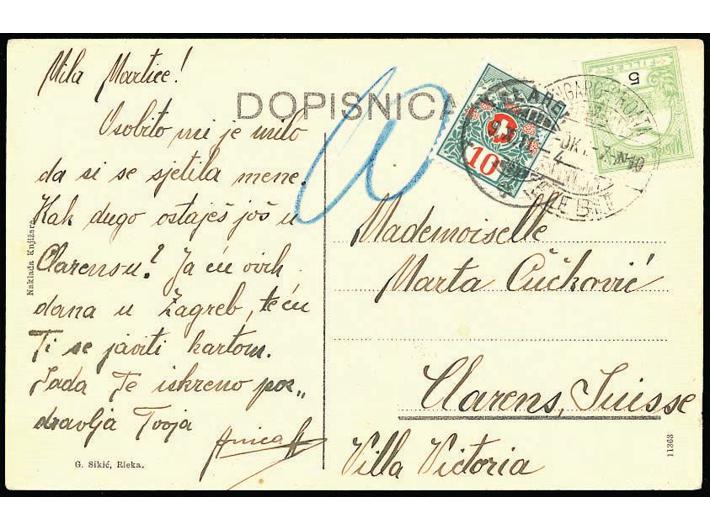 Mila Martice!
DOPISNICA
Osobito mi je milo
da si se sjetila mene.
Kak dugo ostaješ još u
Clarensu? Ja ću ovih
dana u Zagreb, te ću
Ti se javiti kartom.
Sada Te iskreno poz„
dravlja Tvoja
Anica
Naklada Knjižare
G. Sikić, Rieka.
10
5
Mademoiselle
Marta Čučković
Clarens, Suisse
Villa Victoria
11363